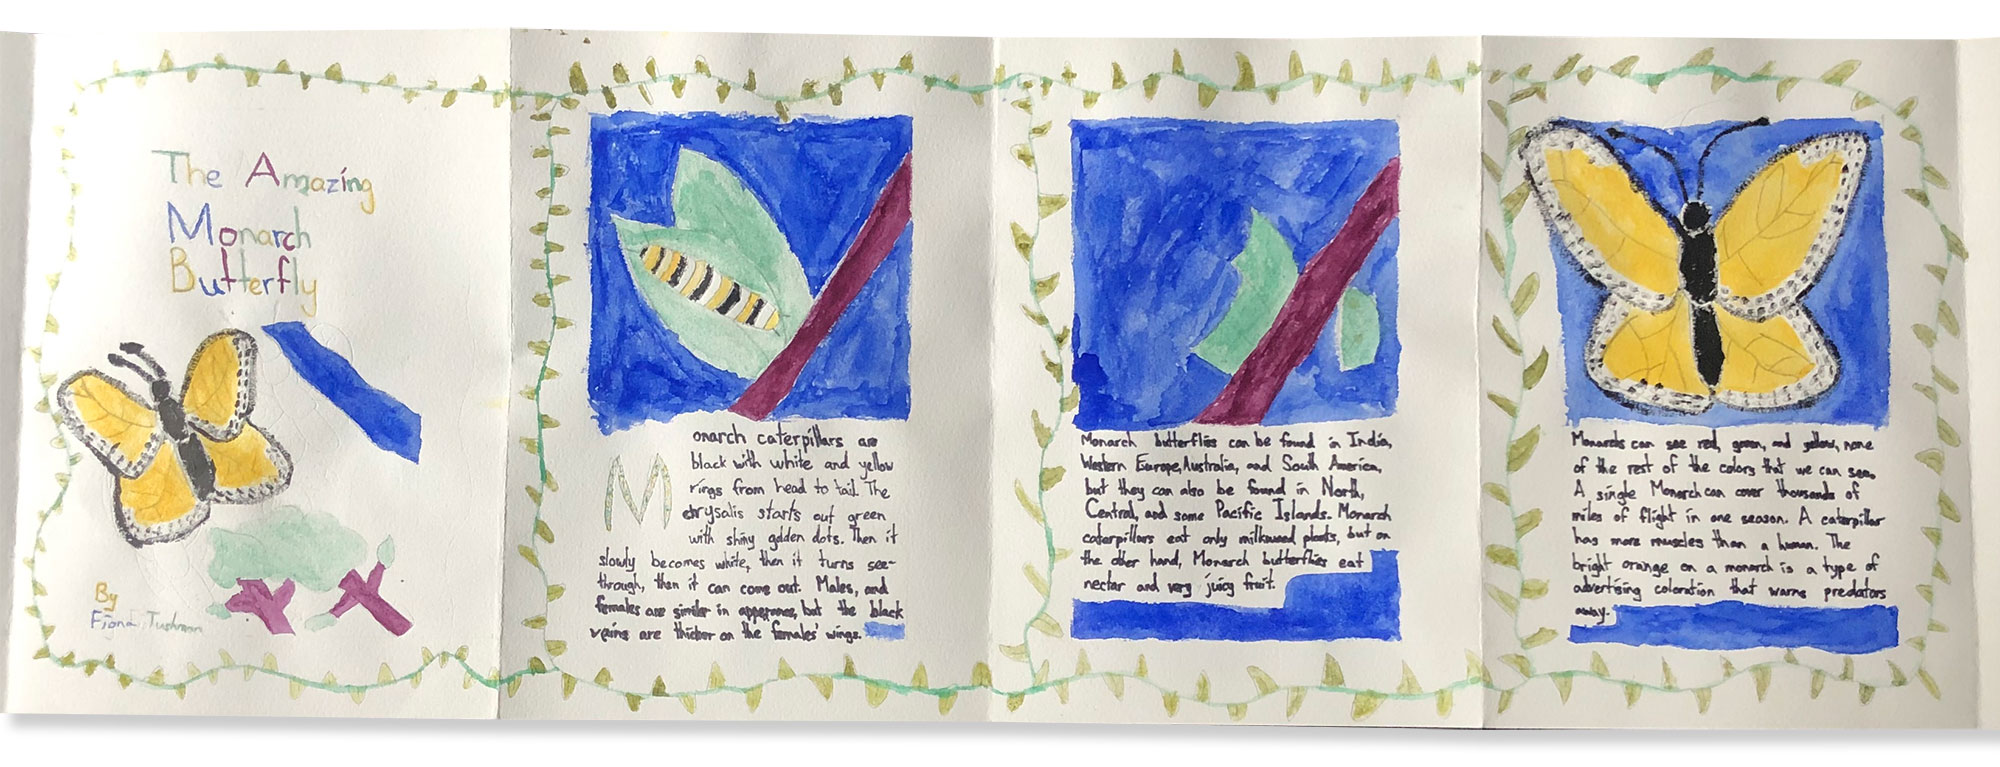 The Amazing
Monarch
Butterfly
By
Monarch caterpillars are
black with white and yellow
rings from head to tail. The
chrysalis starts out green
with shiny golden dots. Then it
slowly becomes white, then it turns see-
through, then it can come out. Males, and
females are similar in apperance, but the black
veins are thicker on the females' wings.
Monarch butterflies can be found in India,
Western Europe, Australia, and South America,
but they can also be found in North,
Central, and some Pacific Islands. Monarch
caterpillars eat only milkweed plants, but on
the other hand, Monarch butterflies eat
nectar and very juicy fruit.
Monarchs can see red, green, and yellow, none
of the rest of the colors that we can see.
A single Monarch can cover thousands of
miles of flight in one season. A caterpillar
has more muscles than a human. The
bright orange on a monarch is a type of
advertising coloration that warns predators
away.